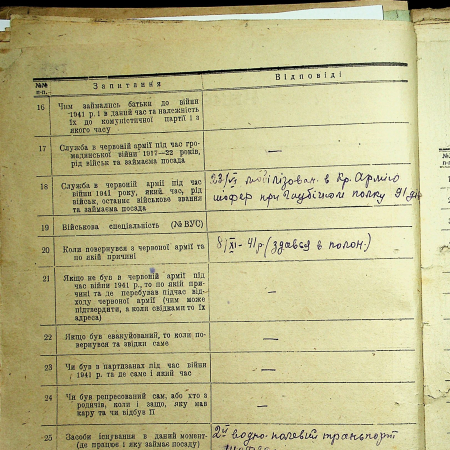 №№ п-п.
Запитання
Відповіді
16
Чим займались батьки до війни
1941 р. і в даний час та належність
їх до комуністичної партії і з
якого часу
17
Служба в червоній армії під час гро-
мадянської війни 1917—22 років,
рід військ та займаєма посада
—
18
Служба в червоній армії під час
війни 1941 року, який час, рід
військ, останнє військове звання
та займаєма посада
23/VI мобілізован. в Кр. Армію
шофер при Гаубічном полку 91 див
19
Військова спеціальність (№ ВУС)
—
20
Коли повернувся з червоної армії та
по якій причині
8/XI-41р (здався в полон.)
21
Якщо не був в червоній армії під
час війни 1941 р., то по якій при-
чині та де перебував підчас від-
ходу червоної армії (чим може
підтвердити, а коли свідками то їх
адреса)
—
22
Якщо був евакуйований, то коли по-
вернувся та звідки саме
—
23
Чи був в партизанах під час війни
1941 р. та де саме і який час
—
24
Чи був репресований сам, або хто з
родичів, коли і защо, яку мав
кару та чи відбув її
—
25
Засоби існування в даний момент
(де працює і яку займає посаду)
транспорт